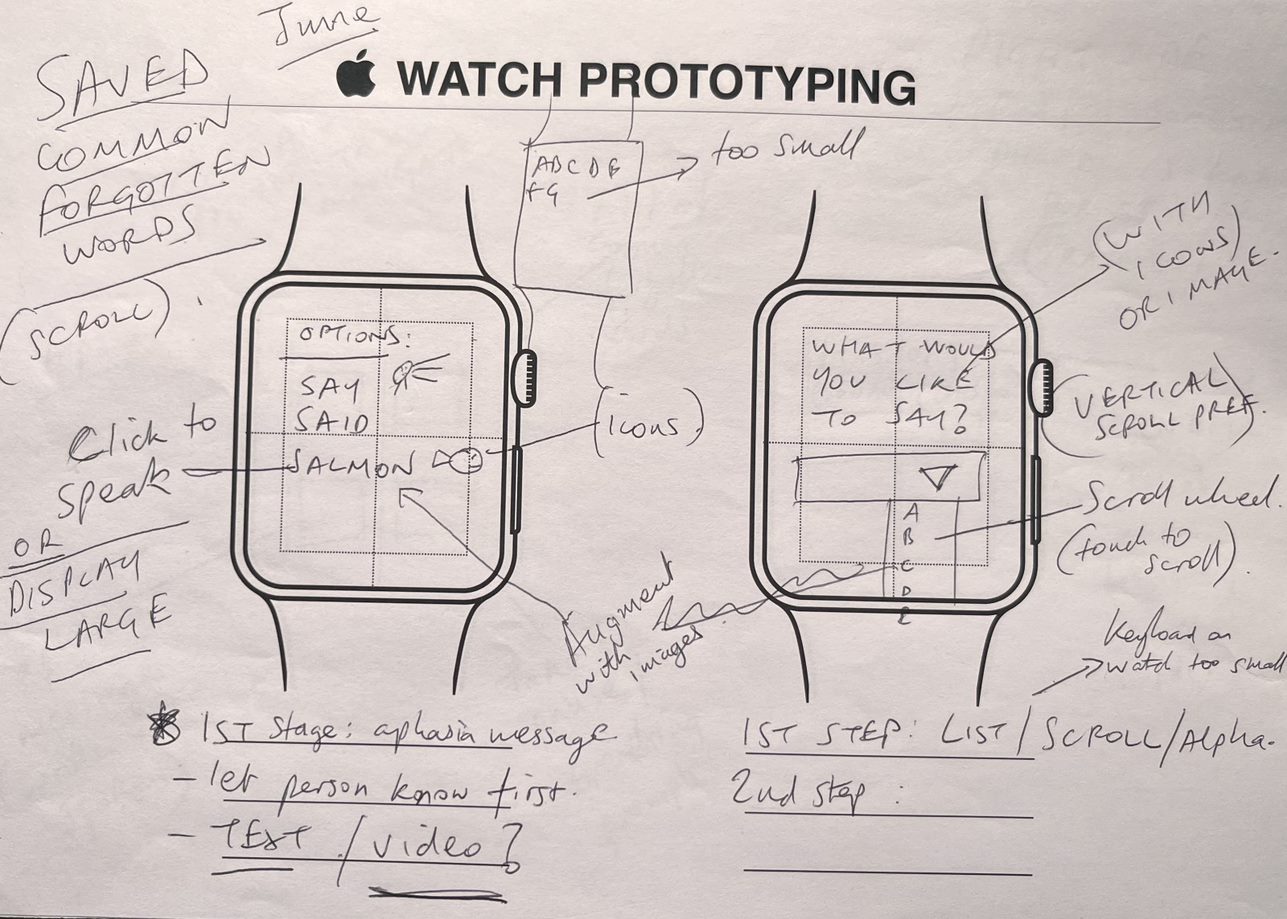 June
WATCH PROTOTYPING
SAVED
COMMON
FORGOTTEN
WORDS
(SCROLL).
ABCDE
FG
too small
OPTIONS:
SAY
SAID
SALMON
Click to
speak
OR
DISPLAY
LARGE
(icons).
Augment
with images
WHAT WOULD
YOU LIKE
TO SAY?
A
B
C
D
E
(WITH
ICONS)
OR IMAGE.
(VERTICAL
SCROLL PREF.)
Scroll wheel.
(touch to
scroll).
Keyboard on
watch too small
1ST Stage: aphasia message
- let person know first.
- TEXT / video?
1ST STEP: LIST/SCROLL/Alpha.
2nd step :